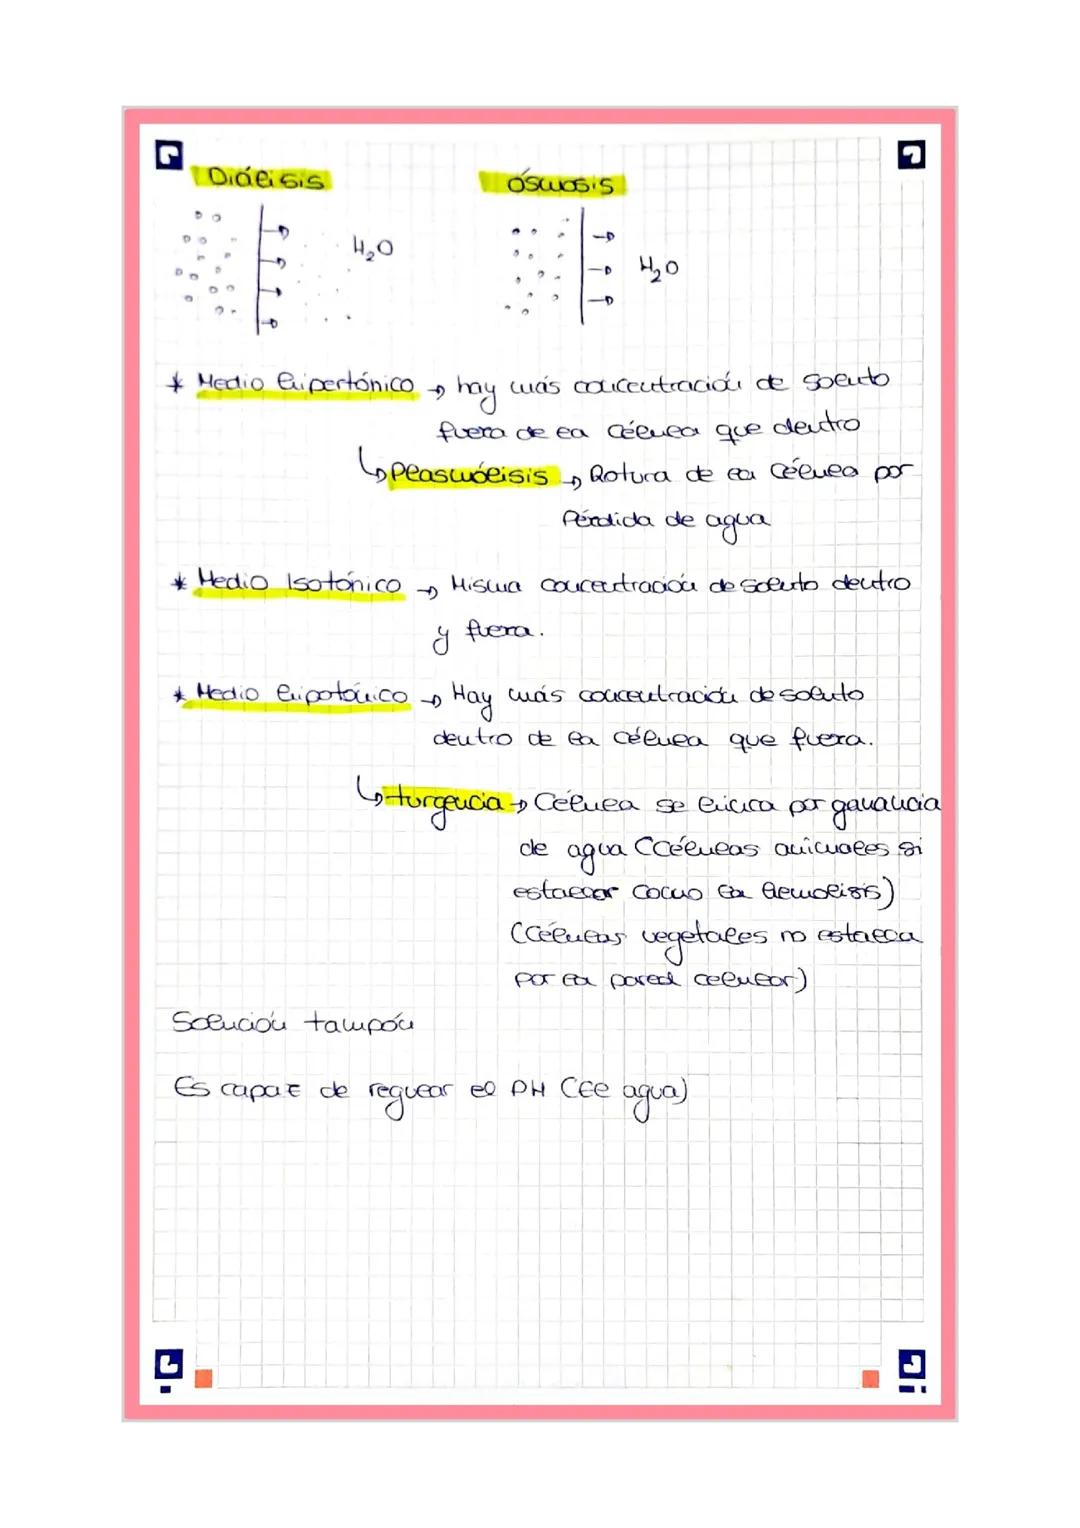 Diálisis
ósmosis
H₂O
H₂O
* Medio hipertónico → hay más concentración de soluto
fuera de la célula que dentro
↳ Plasmólisis → Rotura de la célula por
Pérdida de agua
* Medio Isotónico → Misma concentración de soluto dentro
y fuera.
* Medio hipotónico → Hay más concentración de soluto
dentro de la célula que fuera.
↳ turgencia → Célula se hincha por ganancia
de agua (Células animales si
estallar como la hemolisis)
(Células vegetales no estalla
por la pared celular)
Solución tampón
Es capaz de regular el PH (el agua)